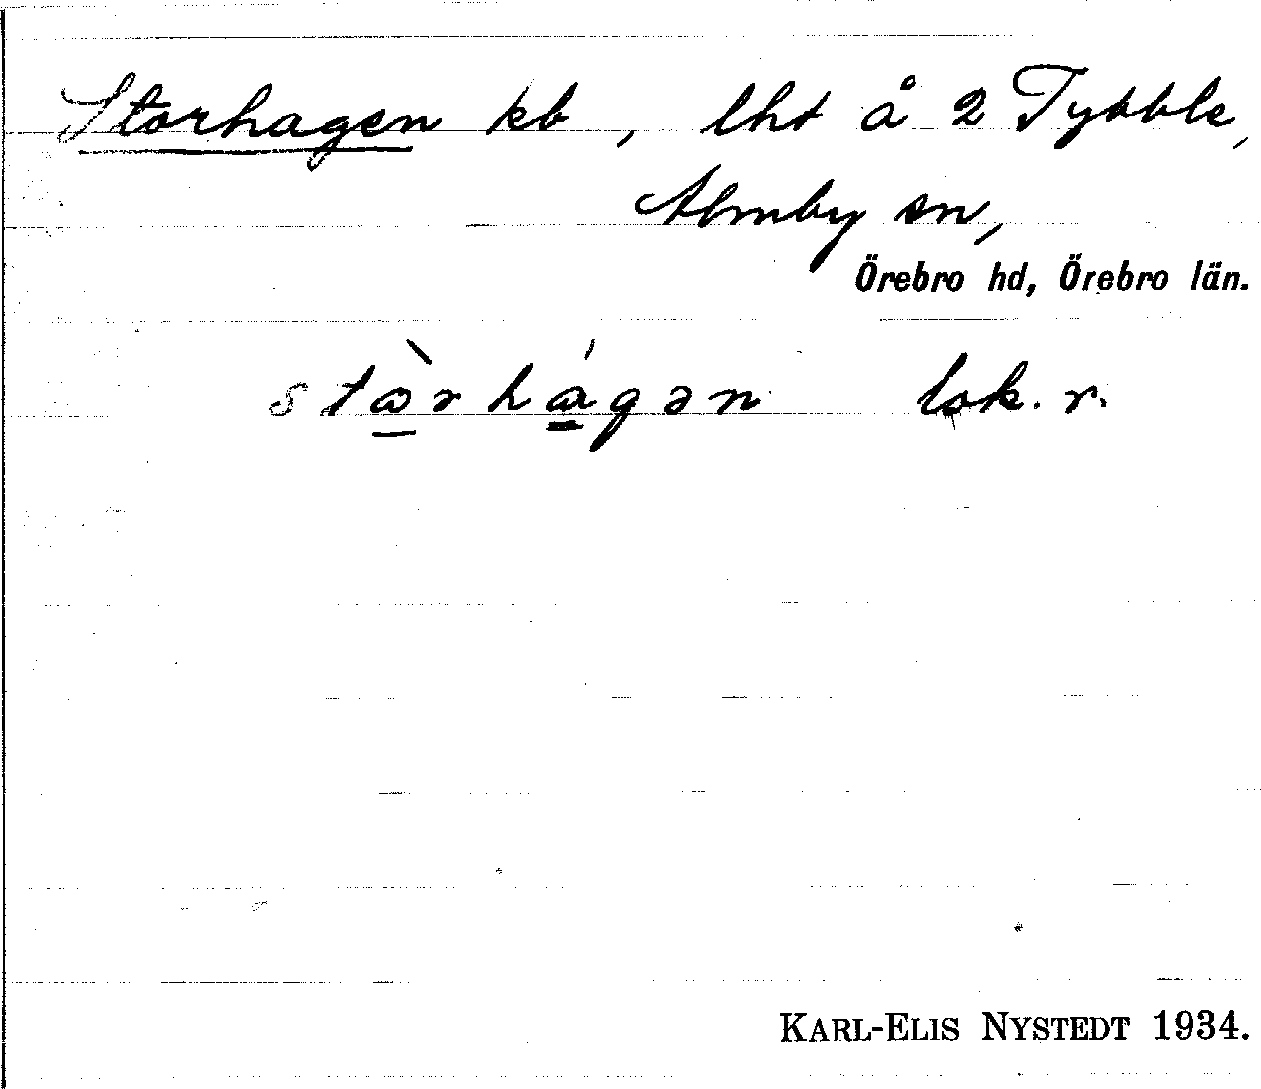 Storhagen kb, lht å 2 Tybble,
Almby sn,
Örebro hd, Örebro län.
stὼ̲rhɑ̲́gən lok. r.
KARL-ELIS NYSTEDT 1934.